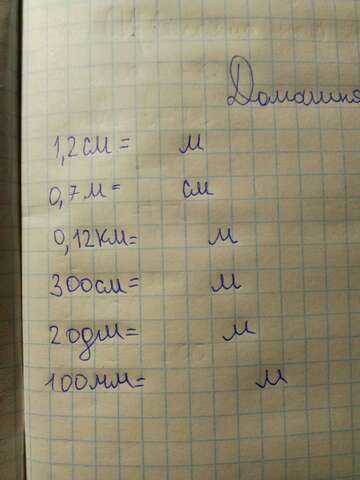 Домашня
1,2см = м
0,7м = см
0,12км= м
300см= м
20дм= м
100мм= м